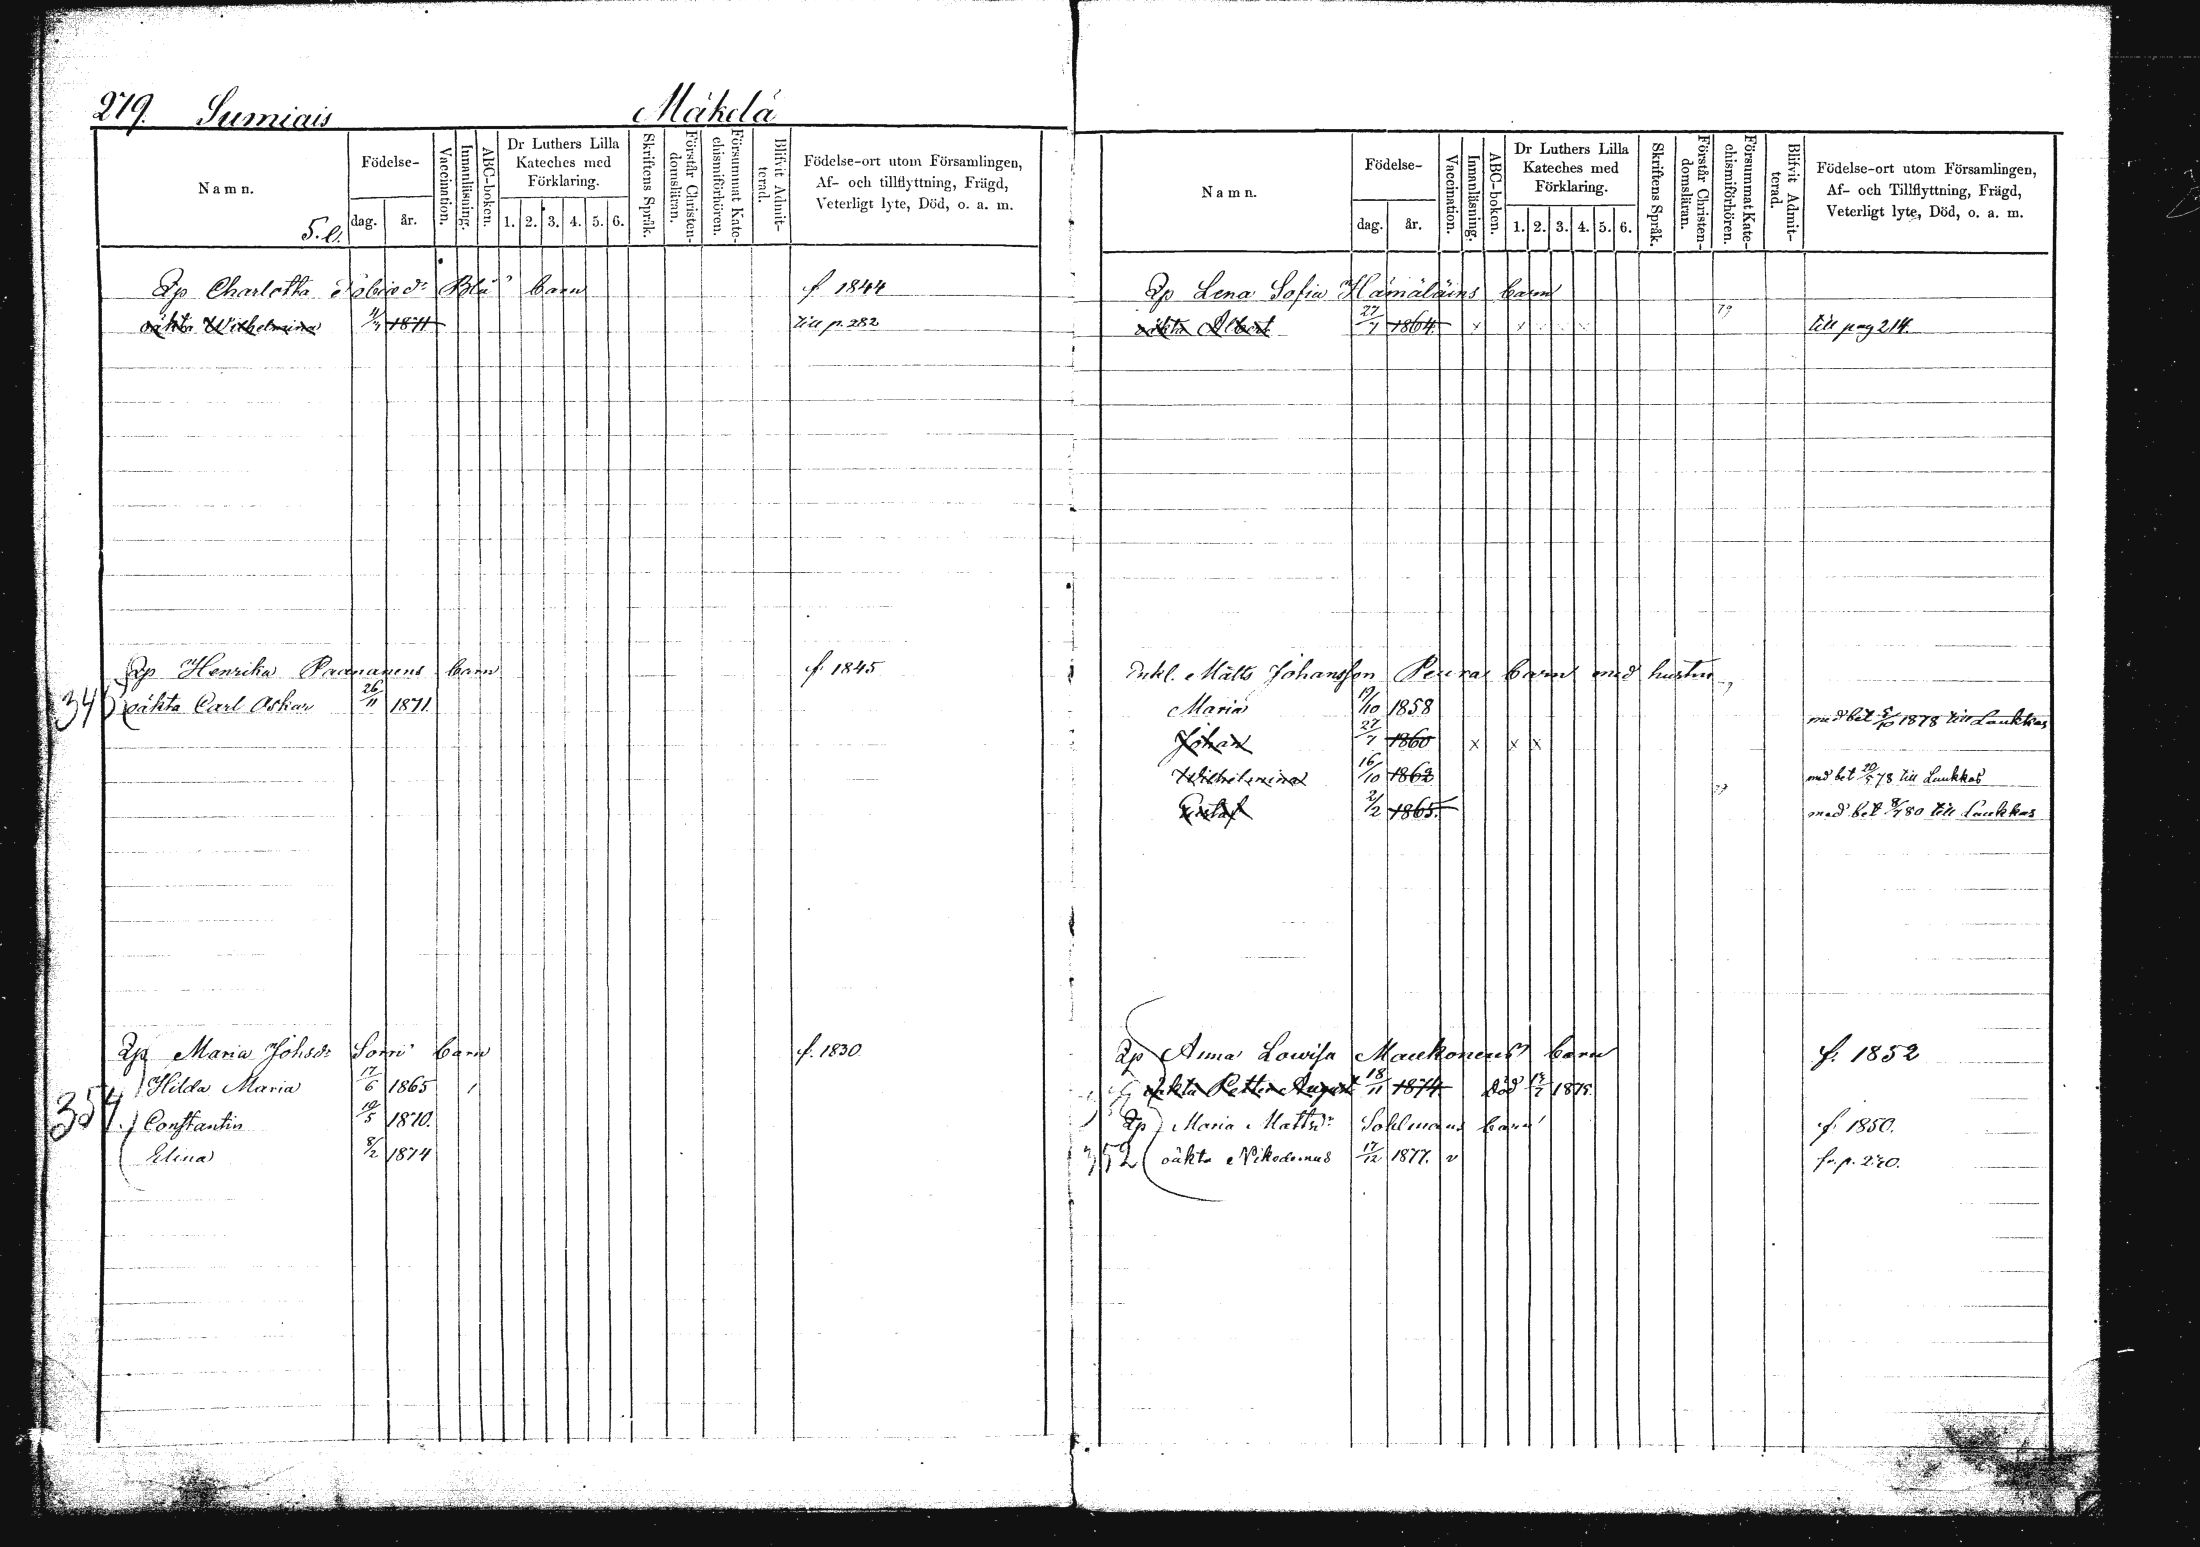 279. Sumiais Mäkelä
Namn. Födelse- dag. år. Vaccination. Innanläsning. ABC-boken. Dr Luthers Lilla Kateches med Förklaring. 1. 2. 3. 4. 5. 6. Skriftens Språk. Förstår Christendomsläran. Försummat Katechismiförhören. Blifvit Admitterad. Födelse-ort utom Församlingen, Af- och tillflyttning, Frägd, Veterligt lyte, Död, o. a. m.
Qp Charlotta barn f 1844
oäkta Wilhelmina 1871 till p. 282
Qp Henrika Paananens barn f. 1845
oäkta Carl Oskar 26/11 1871.
Qp Maria Johsdr Sorri barn f. 1830
Hilda Maria 17/6 1865
354. Constantin 1870.
Elina 8/2 1874
Namn. Födelse- dag. år. Vaccination. Innanläsning. ABC-boken. Dr Luthers Lilla Kateches med Förklaring. 1. 2. 3. 4. 5. 6. Skriftens Språk. Förstår Christendomsläran. Försummat Katechismiförhören. Blifvit Admitterad. Födelse-ort utom Församlingen, Af- och Tillflyttning, Frägd, Veterligt lyte, Död, o. a. m.
Qp Lena Sofia Hämäläins barn
oäkta Albert 27/7 1864. x x 79 till pag 214.
Inhl. Matts Johansson Peuras barn med hustru
Maria 19/10 1858 med bet 5/10 1878 till Laukkas
Johan 27/7 1860 x x x
Wilhelmina 16/10 1862 med bet 78 till Laukkas
Gustaf 2/2 1865. med bet 80 till Laukkas
Qp Anna Lowisa Maukonens barn f. 1852
oäkta Petter August 18/11 1874. Död 1875.
Qp Maria Mattsdr Sohlmans barn f. 1850.
352 oäkta Nikodemus 17/12 1877. v fr. p. 270.